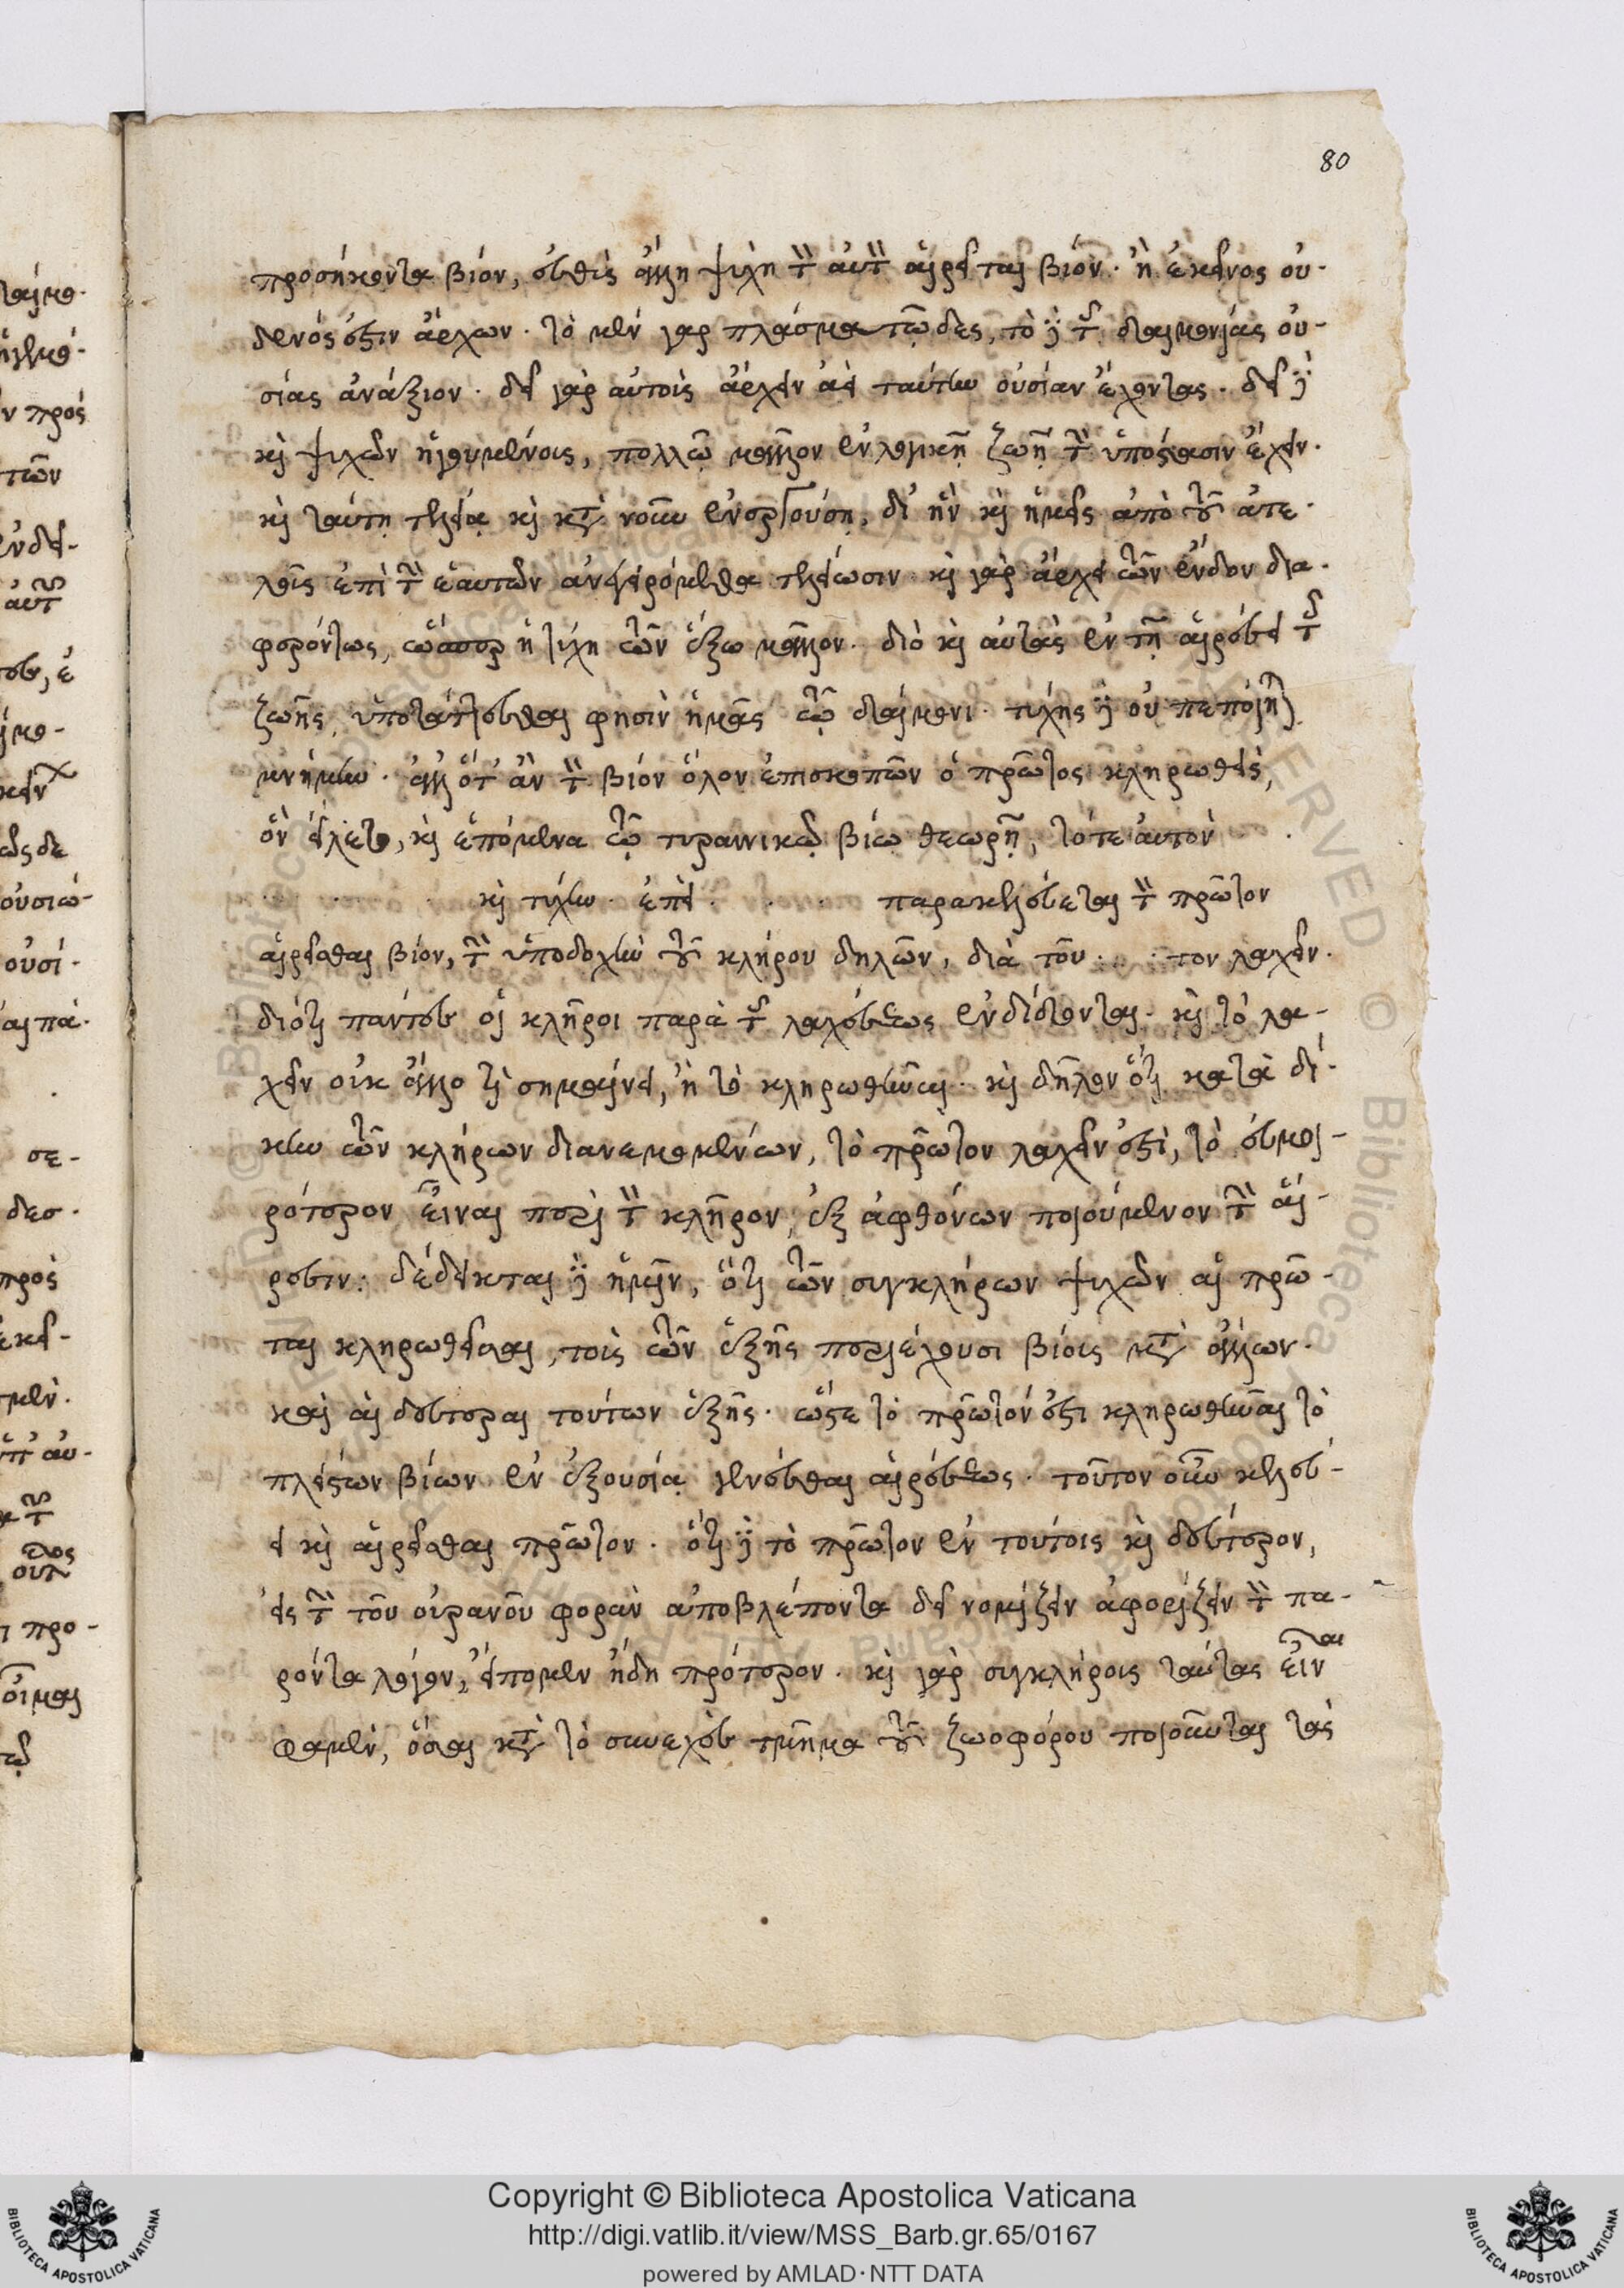 80
προσήκοντα βίον, εὐθὺς ἄλλη ψυχὴ τὸν αὐτὸν αἱρεῖται βίον. ἢ ἐκεῖνος οὐ-
δενός ἐστιν ἄρχων. τὸ μὲν γὰρ πλασματῶδες, τὸ δὲ τῆς δαιμονίας οὐ-
σίας ἀνάξιον. δεῖ γὰρ αὐτοὺς ἄρχειν ἀεὶ ταύτην οὐσίαν ἔχοντας. δεῖ δὲ
καὶ ψυχῶν ἡγουμένους, πολλῷ μᾶλλον ἐν λογικῇ ζωῇ τὴν ὑπόστασιν ἔχειν.
καὶ ταύτῃ τελείᾳ καὶ κατὰ νοῦν ἐνεργούσῃ, δι' ἣν καὶ ἡμεῖς ἀπὸ τοῦ ἀτε-
λοῦς ἐπὶ τὴν ἑαυτῶν ἀνεγειρόμεθα τελείωσιν. καὶ γὰρ ἄρχει τῶν ἔνδον δια-
φερόντως, ὥσπερ ἡ τύχη τῶν ἔξω μᾶλλον. διὸ καὶ αὐτὰς ἐν τῇ αἱρέσει τῆς
ζωῆς, ὑποτάττεσθαι φησὶν ἡμᾶς τῷ δαίμονι. τύχης δὲ οὐ πεποίηται
μνήμην. ἀλλ' ὅτ' ἂν τὸν βίον ὅλον ἐπισκοπῶν ὁ πρῶτος κληρωθεὶς,
ὃν εἵλετο, καὶ ἑπόμενα τῷ τυραννικῷ βίῳ θεωρῇ, τότε αὐτὸν
καὶ τύχην. ἐπεὶ παρακελεύεται τὸν πρῶτον
αἱρεῖσθαι βίον, τὴν ὑποδοχὴν τοῦ κλήρου δηλῶν, διὰ τοῦ τον λαχεῖν.
διότι πάντες οἱ κλῆροι παρὰ τῆς λαχέσεως ἐνδίδονται. καὶ τὸ λα-
χεῖν οὐκ ἄλλο τι σημαίνει, ἢ τὸ κληρωθῆναι. καὶ δῆλον ὅτι κατὰ δί-
κην τῶν κλήρων διανεμομένων, τὸ πρῶτον λαχεῖν ἐστὶ, τὸ εὐμοι-
ρότερον εἶναι περὶ τὸν κλῆρον, ἐξ ἀφθόνων ποιούμενον τὴν αἵ-
ρεσιν. δέδεικται δὲ ἡμῖν, ὅτι τῶν συγκλήρων ψυχῶν αἱ πρῶ-
ται κληρωθεῖσαι, τοὺς τῶν ἑξῆς περιέχουσι βίους μετὰ ἄλλων.
καὶ αἱ δεύτεραι τούτων ἑξῆς. ὥστε τὸ πρῶτόν ἐστι κληρωθῆναι τὸ
πλείστων βίων ἐν ἐξουσίᾳ γενέσθαι αἱρέσεως. τοῦτον οὖν κελεύ-
ει καὶ αἱρεῖσθαι πρῶτον. ὅτι δὲ τὸ πρῶτον ἐν τούτοις καὶ δεύτερον,
εἰς τὴν τοῦ οὐρανοῦ φορὰν ἀποβλέποντα δεῖ νομίζειν ἀφορίζειν τὸν πα-
ρόντα λόγον, εἴπομεν ἤδη πρότερον. καὶ γὰρ συγκλήρους ταύτας εἶναι
φαμὲν, ὅσαι κατὰ τὸ συνεχὲς τμῆμα τοῦ ζωοφόρου ποιοῦνται τὰς
Copyright © Biblioteca Apostolica Vaticana
http://digi.vatlib.it/view/MSS_Barb.gr.65/0167
powered by AMLAD·NTT DATA